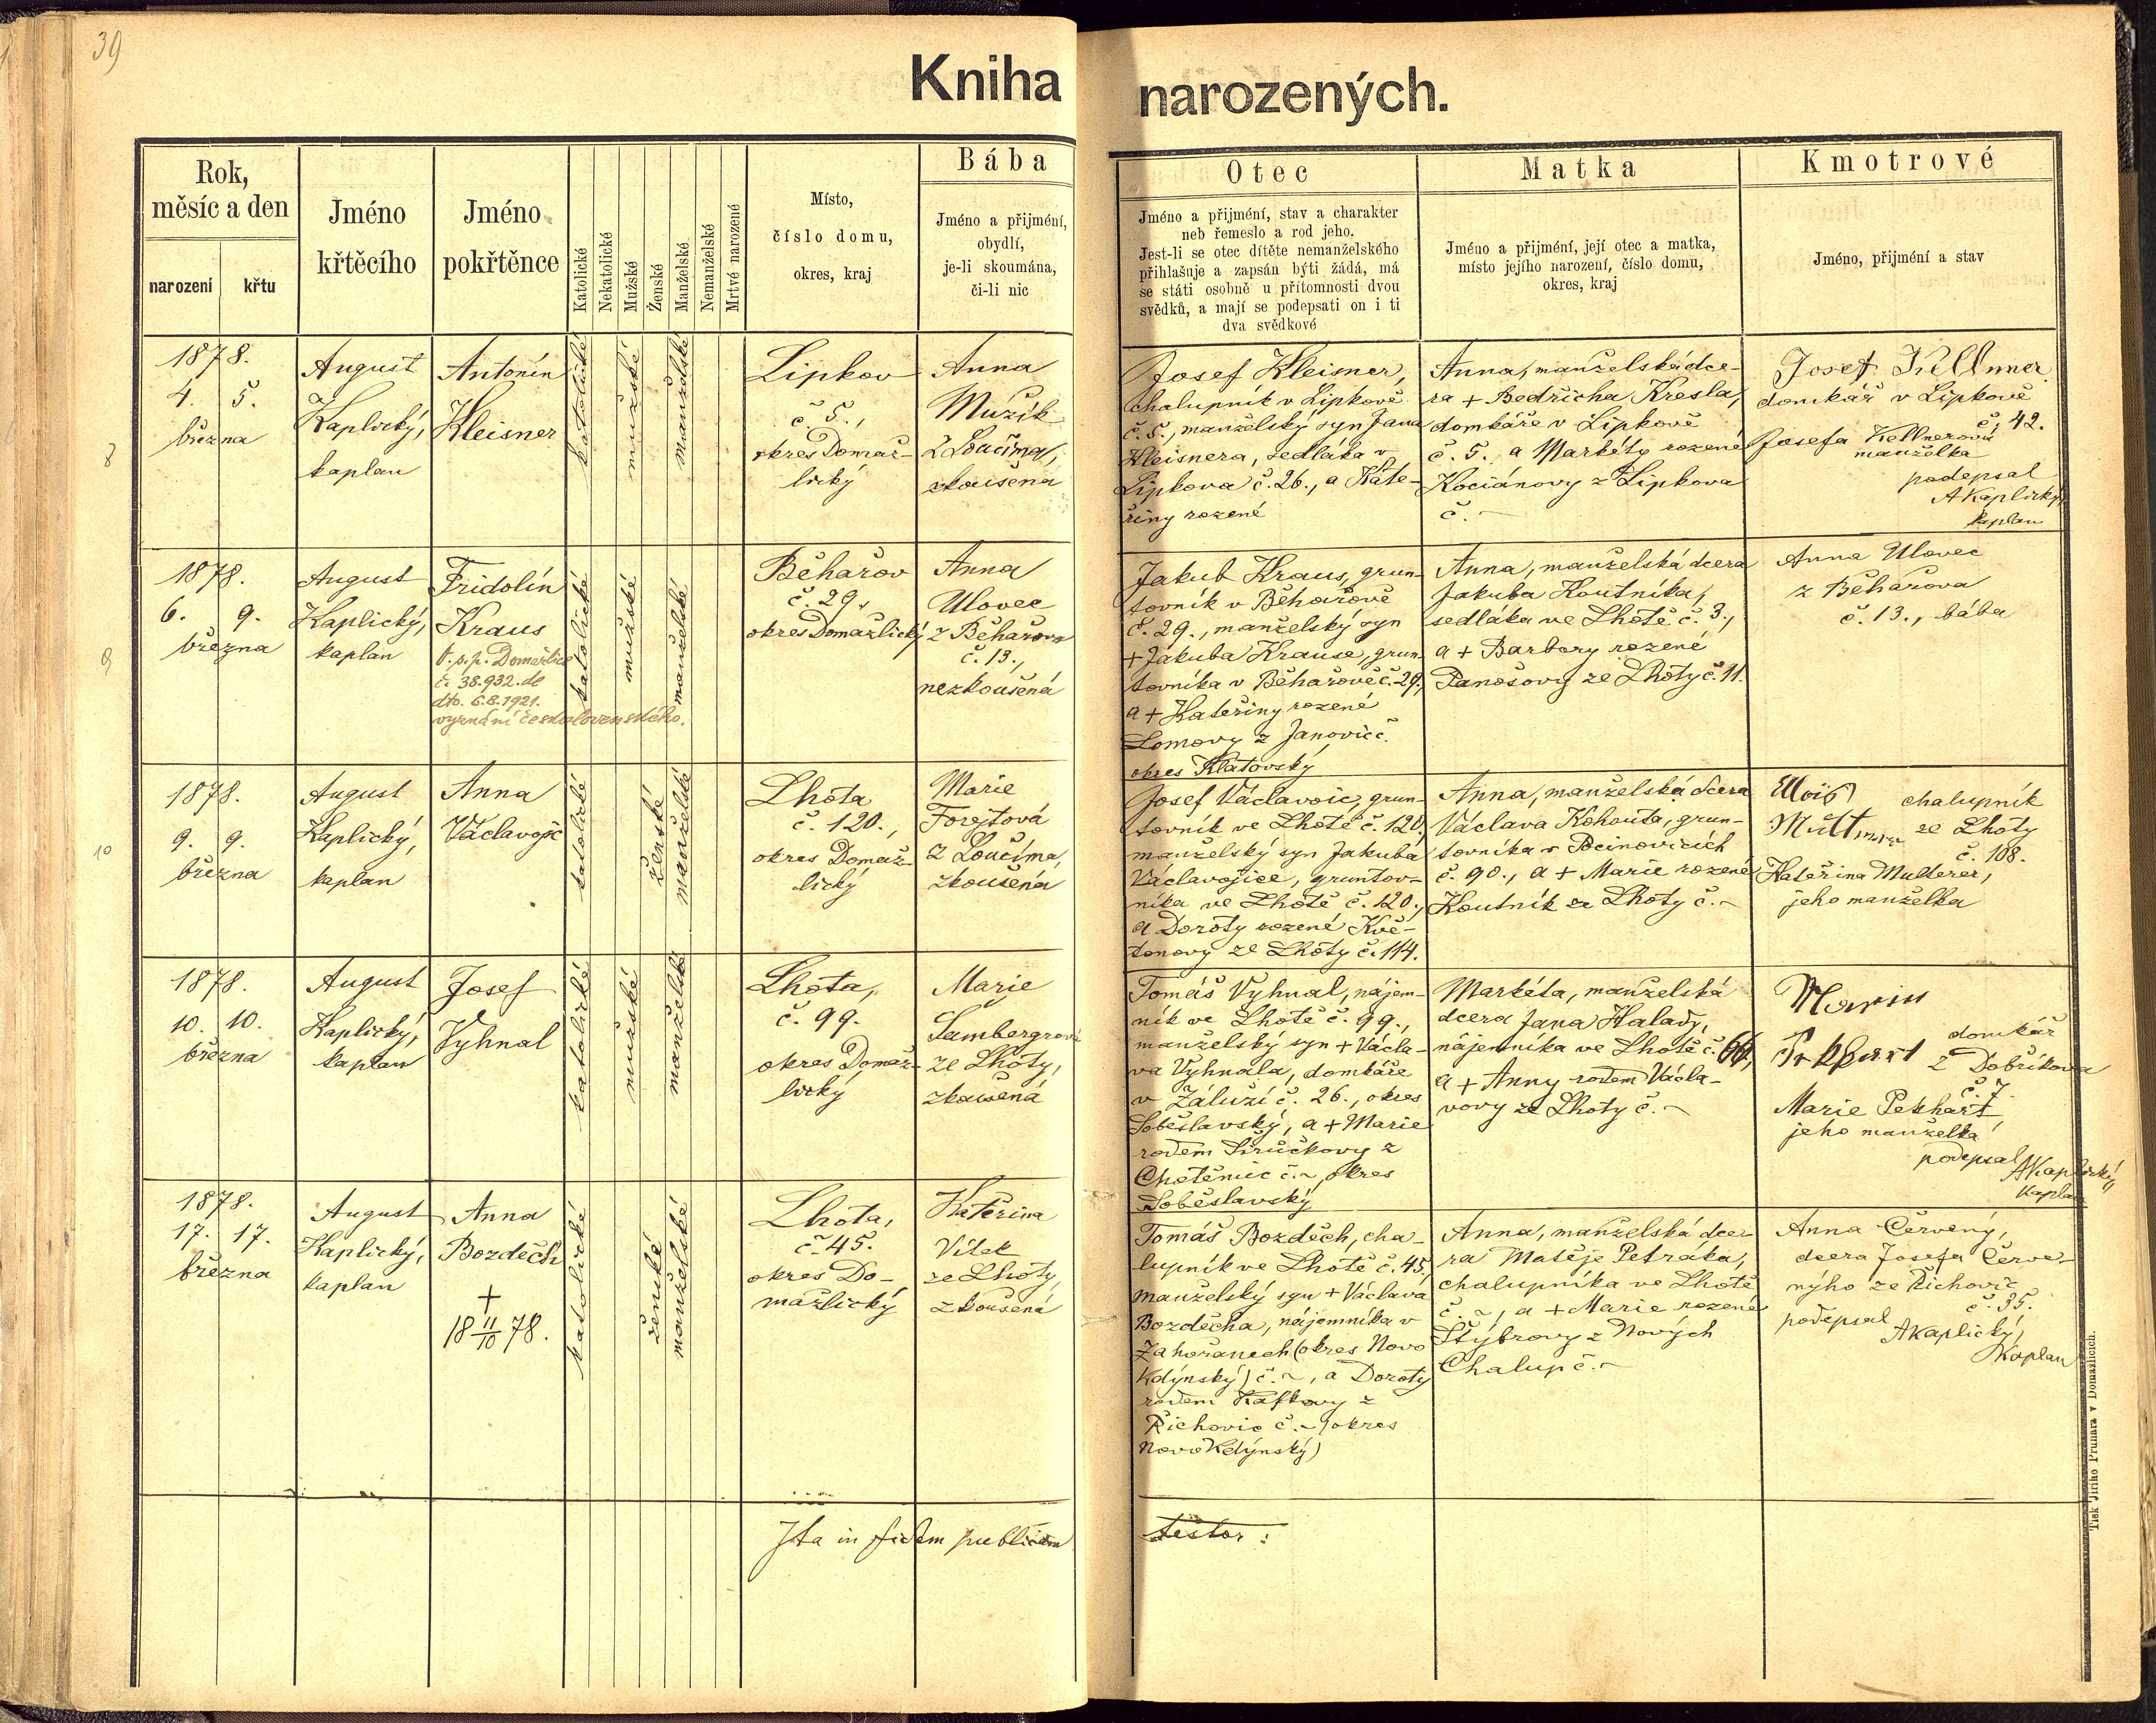 39
Kniha narozených.
Rok,
měsíc a den
narození
křtu
Jméno
křtěcího
Jméno
pokřtěnce
Katolické
Nekatolické
Mužské
Ženské
Manželské
Nemanželské
Mrtvé narozené
Místo,
číslo domu,
okres, kraj
Bába
Jméno a přijmení,
obydlí,
je-li skoumána,
či-li nic
Otec
Jméno a přijmení, stav a charakter
neb řemeslo a rod jeho.
Jest-li se otec dítěte nemanželského
přihlašuje a zapsán býti žádá, má
se státi osobně u přítomnosti dvou
svědků, a mají se podepsati on i ti
dva svědkové
Matka
Jméno a přijmení, její otec a matka,
místo jejího narození, číslo domu,
okres, kraj
Kmotrové
Jméno, přijmení a stav
8
1878.
4. 5.
března
August
Kaplický,
kaplan
Antonín
Kleisner
katolické
mužské
manželské
Lipkov
č. 5.,
okres Domaž-
lický
Anna
Mužík
z Loučíma,
zkoušena
Josef Kleisner,
chalupník v Lipkově
č. 5., manželský syn Jana
Kleisnera, sedláka v
Lipkova č. 26., a Kate-
řiny rozené
Anna, manželská dce-
ra + Bedřicha Kresla,
domkáře v Lipkově
č. 5. a Markéty rozené
Kociánovy z Lipkova
č. ~
Josef Kellner
domkář v Lipkově
č. 42.
Josefa Kellnerová
manželka
podepsal
AKaplický,
kaplan
9
1878.
6. 9.
března
August
Kaplický,
kaplan
Fridolín
Kraus
O.s.p. Domažlice
č. 38.932. de
dto. 6.8.1921.
vyznání československého.
katolické
mužské
manželské
Běhařov
č. 29.
okres Domažlický
Anna
Ulovec
z Běhařova
č. 13.,
nezkoušená
Jakub Kraus, grun-
tovník v Běhařově
č. 29., manželský syn
+ Jakuba Krause, grun-
tovníka v Běhařově č. 29.,
a + Kateřiny rozené
Lomovy z Janovic č.
okres Klatovský
Anna, manželská dcera
Jakuba Koutníka,
sedláka ve Lhotě č. 3.,
a + Barbory rozené
Panošovy ze Lhoty č. 11.
Anna Ulovec
z Běhařova
č. 13., bába
10
1878.
9. 9.
března
August
Kaplický,
kaplan
Anna
Václavojc
katolické
ženské
manželské
Lhota
č. 120.,
okres Domaž-
lický
Marie
Forejtová
z Loučíma,
zkoušena
Josef Václavoic, grun-
tovník ve Lhotě č. 120,
manželský syn Jakuba
Václavojice, gruntov-
níka ve Lhotě č. 120.,
a Doroty rozené Kvě-
tonovy ze Lhoty č. 114.
Anna, manželská dcera
Václava Kohouta, grun-
tovníka v Pocinovicích
č. 90., a + Marie rozené
Koutník ze Lhoty č. ~
Alois chalupník
Multerer ze Lhoty
č. 108.
Kateřina Multerer,
jeho manželka
1878.
10. 10.
března
August
Kaplický,
kaplan
Josef
Vyhnal
katolické
mužské
manželské
Lhota,
č. 99.
okres Domaž-
lický
Marie
Sambergrová
ze Lhoty,
zkoušená
Tomáš Vyhnal, nájem-
ník ve Lhotě č. 99.,
manželský syn + Václa-
va Vyhnala, domkáře
v Záluží č. 26., okres
Soběslavský, a + Marie
rodem Stručkovy z
Chotěmic č. ~ okres
Soběslavský
Markéta, manželská
dcera Jana Halady,
nájemníka ve Lhotě č. 66,
a + Anny rodem Václa-
vovy ze Lhoty č. ~
domkář
z Dobříkova
č. 7.
Marie Pekhart,
jeho manželka
podepsal
AKaplický,
kaplan
1878.
17. 17.
března
August
Kaplický,
kaplan
Anna
Bozděch
+
18 11/10 78.
katolické
ženské
manželské
Lhota,
č. 45.
okres Do-
mažlický
Kateřina
Vítek
ze Lhoty,
zkoušená
Tomáš Bozděch, cha-
lupník ve Lhotě č. 45,
manželský syn + Václava
Bozděcha, nájemníka v
Zahořanech (okres Novo
Kdýnský) č. ~, a Doroty
rodem Kafkovy z
Řichovic č. ~ (okres
Novo Kdýnský)
Anna, manželská dce-
ra Matěje Petráka,
chalupníka ve Lhotě
č. ~, a + Marie rozené
Štýbrovy z Nových
Chalup č. ~
Anna Červený,
dcera Josefa Červe-
nýho ze Řichovic
č. 35.
podepsal
AKaplický,
Kaplan
Ita in fidem publicam
testor:
Tisk Jiřího Prunara v Domažlicích.